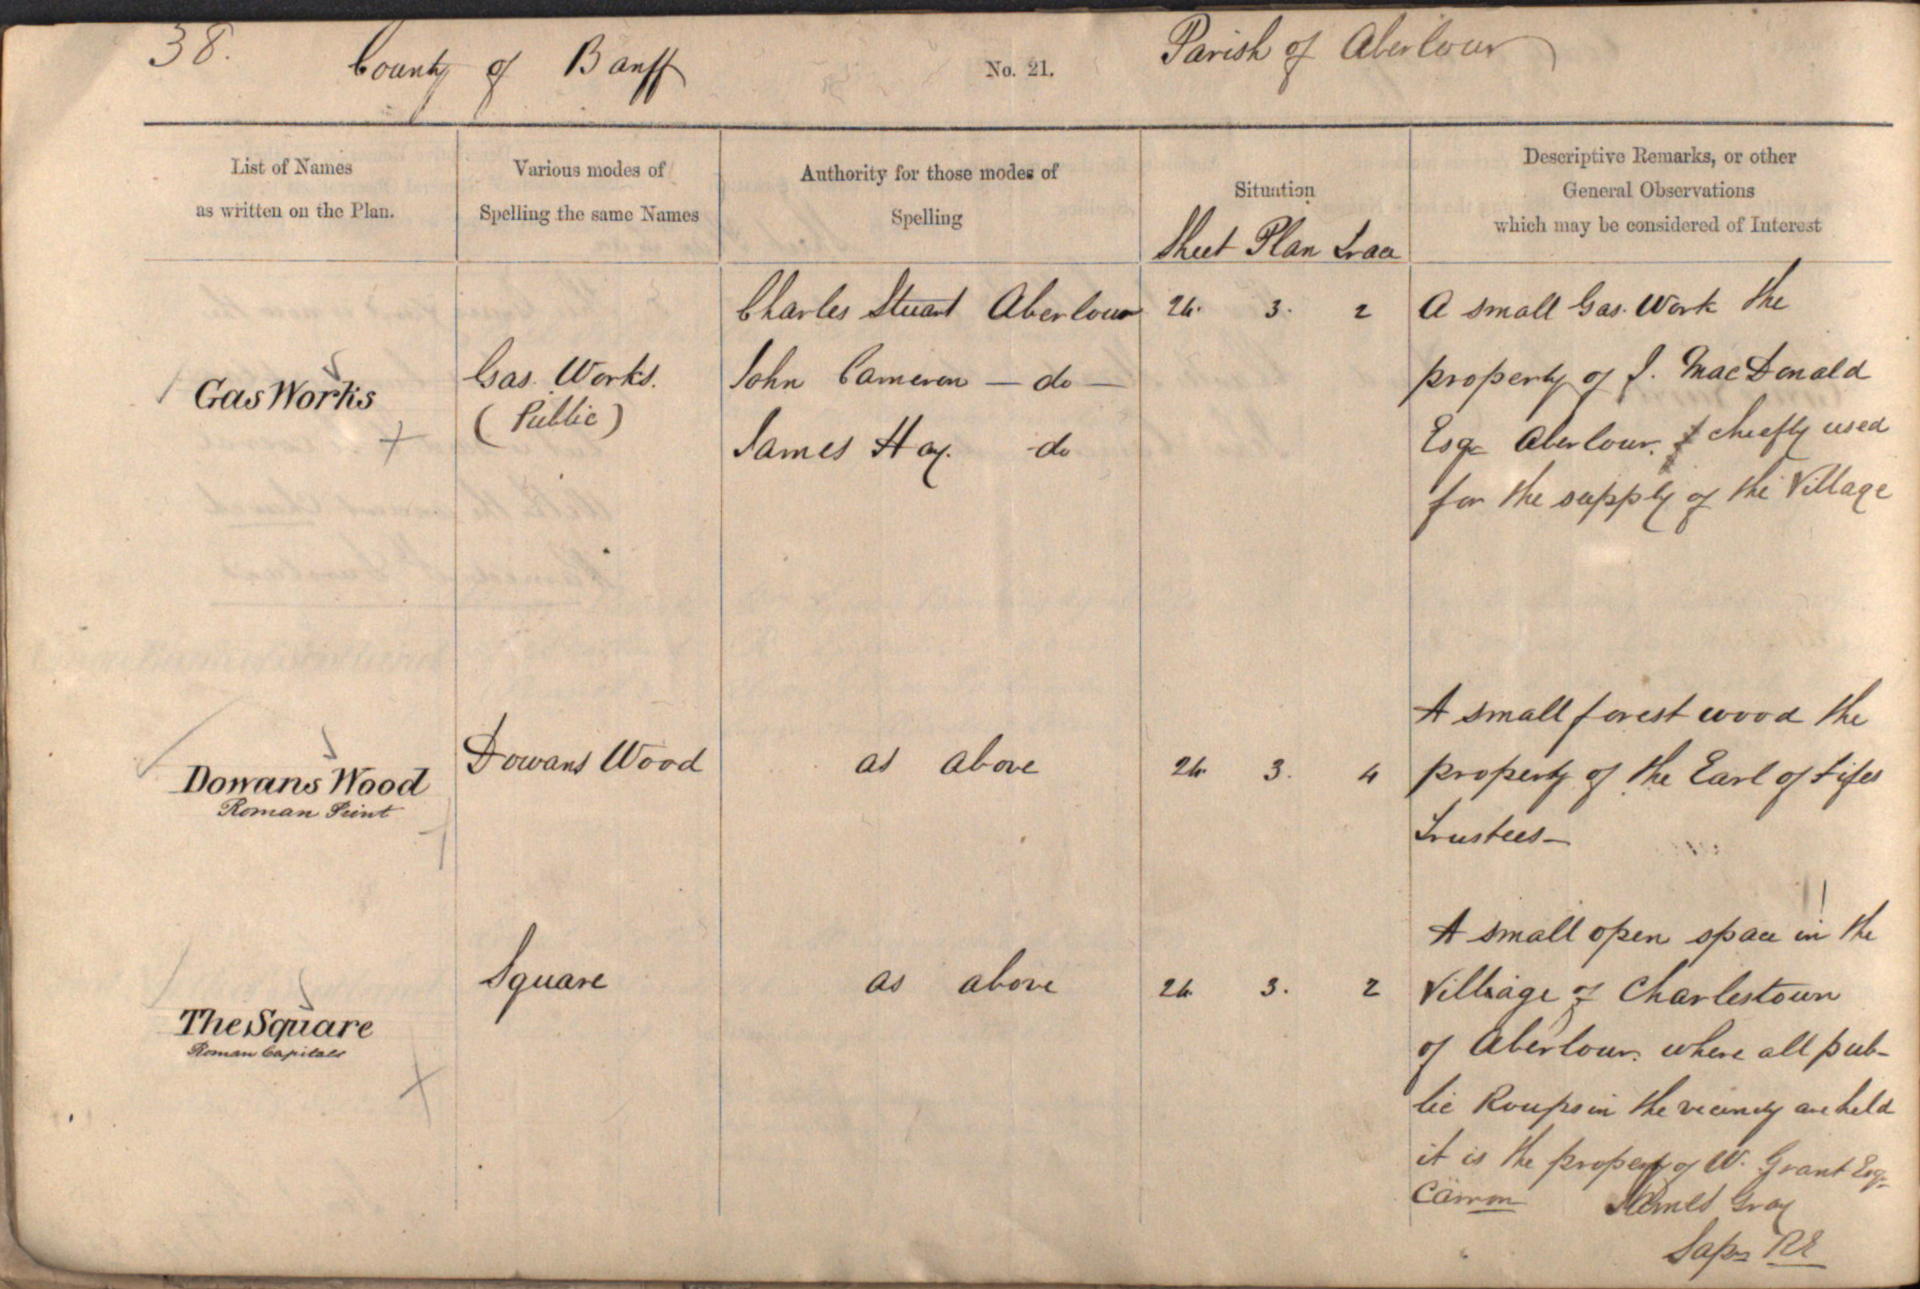 38.
County of Banff
No. 21.
Parish of Aberlour
List of Names
as written on the Plan.
Various modes of
Spelling the same Names
Authority for those modes of
Spelling
Situation
Sheet Plan Trace
Descriptive Remarks, or other
General Observations
which may be considered of Interest
Gas Works
Gas. Works.
(Public)
Charles Stuart Aberlour
John Cameron — do —
James Hay. do
24. 3. 2
A small Gas. Work the
property of J. MacDonald
Esqr Aberlour. & chiefly used
for the supply of the Village
Dowans Wood
Roman Print
Dowans Wood
as above
24. 3. 4
A small forest wood the
property of the Earl of Fifes
Trustees—
The Square
Roman Capitals
Square
as above
24. 3. 2
A small open space in the
Village of Charlestown
of Aberlour. where all pub-
lic Roups in the vicinity are held
it is the property of W. Grant Esqr.
Carron
James Gray
Sapr RE